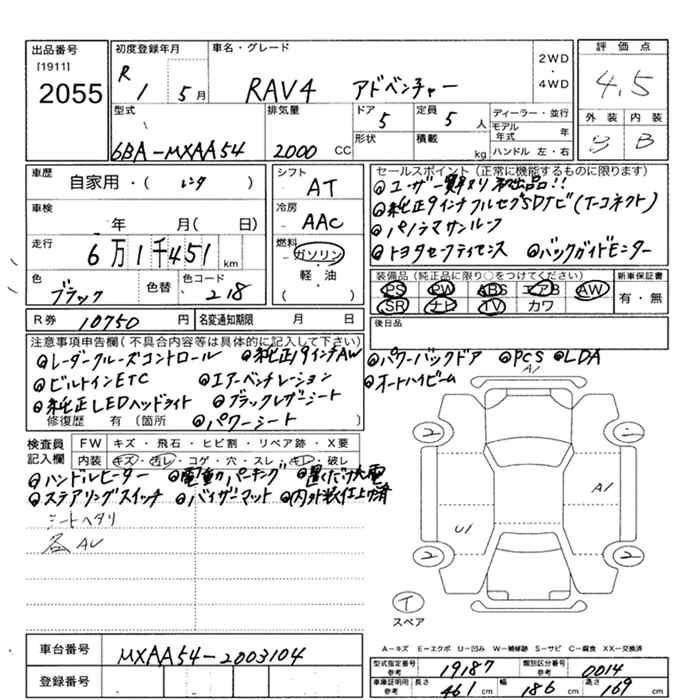 出品番号
[1911]
2055
初度登録年月
R 1 5月
車名・グレード
RAV4 アドベンチャー
2WD
・
4WD
評価点
4.5
外装 内装
B B
型式
6BA-MXAA54
排気量
2000 CC
ドア
5
定員
5 人
形状
積載
kg
ディーラー・並行
モデル年式 年
ハンドル 左・右
車歴
自家用・( レンタ )
車検
年 月( 日)
走行
6万1千451km
色
ブラック
色替
色コード
218
シフト
AT
冷房
AAC
燃料
ガソリン
・
軽・油
( )
セールスポイント(正常に機能するものに限ります)
◎ユーザー買取り 初出品!!
◎純正9インチフルセグSDナビ(T-コネクト)
◎パノラマサンルーフ
◎トヨタセーフティセンス ◎バックガイドモニター
装備品(純正品に限り○をつけてください)
PS PW ABS エアB AW
SR ナビ TV カワ
新車保証書
有・無
R券 10750 円
名変通知期限 月 日
後日品
注意事項申告欄(不具合内容等は具体的に記入して下さい)
◎レーダークルーズコントロール ◎純正19インチAW
◎ビルトインETC ◎エアーベンチレーション
◎純正LEDヘッドライト ◎ブラックレザーシート
修復歴 有(箇所 ◎パワーシート )
◎パワーバックドア ◎PCS ◎LDA
◎オートハイビーム
検査員記入欄
FW キズ・飛石・ヒビ割・リペア跡・X要
内装 キズ・汚レ・コゲ・穴・スレ・キレ・破レ
◎ハンドルヒーター ◎電動パーキング ◎置くだけ充電
◎ステアリングスイッチ ◎バイザーマット ◎内外装仕上げ済
シートヘタリ
各AU
A1
2
2
A1
U1
2
2
T
スペア
A-キズ E-エクボ U-凹み W-補修跡 S-サビ C-腐食 XX-交換済
車台番号
MXAA54-2003104
登録番号
型式指定番号 参考 19187
類別区分番号 参考 0014
車庫証明用 参考 長さ 461 cm 幅 186 cm 高さ 169 cm